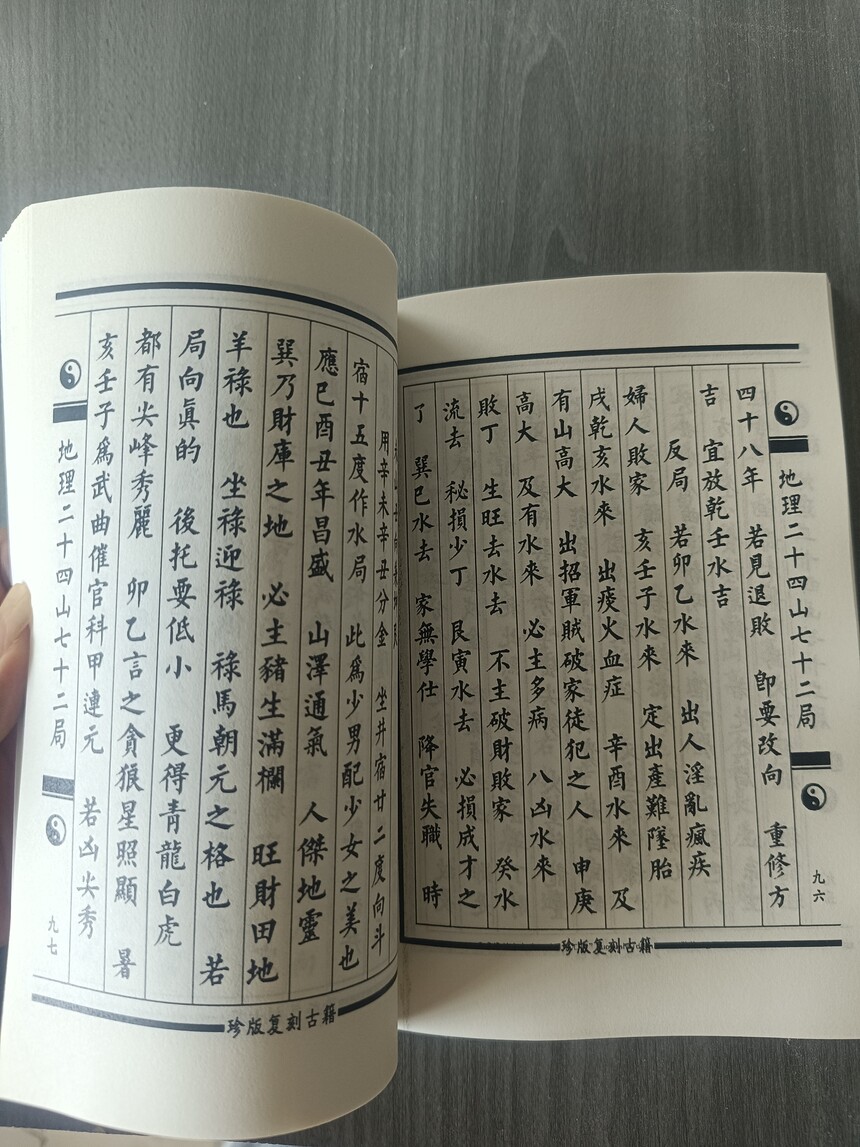 地理二十四山七十二局
九六
四十八年 若見退敗 卽要改向 重修方
吉 宜放乾壬水吉
反局 若卯乙水來 出人淫亂瘋疾
婦人敗家 亥壬子水來 定出產難墜胎
戌乾亥水來 出痰火血症 辛酉水來 及
有山高大 出招軍賊破家徒犯之人 申庚
高大 及有水來 必主多病 八凶水來
敗丁 生旺去水去 不主破財敗家 癸水
流去 秘損少丁 艮寅水去 必損成才之
丁 巽巳水去 家無學仕 降官失職 時
珍版复刻古籍
用辛未辛丑分金 坐井宿廿二度向斗
宿十五度作水局 此爲少男配少女之美也
應巳酉丑年昌盛 山澤通氣 人傑地靈
巽乃財庫之地 必主豬生滿欄 旺財田地
羊祿也 坐祿迎祿 祿馬朝元之格也 若
局向眞的 後托要低小 更得青龍白虎
都有尖峰秀麗 卯乙言之貪狼星照顯 暑
亥壬子爲武曲催官科甲連元 若凶尖秀
地理二十四山七十二局
九七
珍版复刻古籍